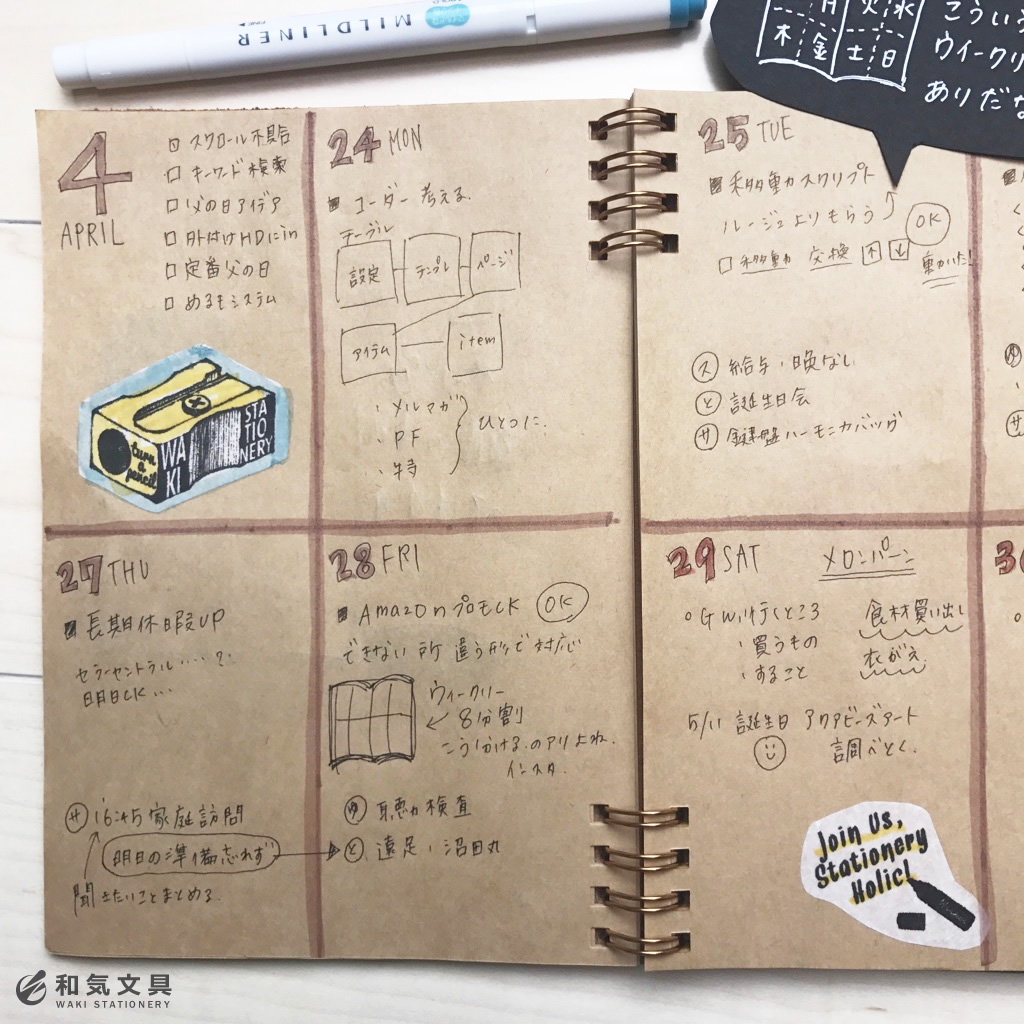 MILDLINER
月 火 水
木 金 土 日
こういう
ウィークリ
ありだな
4
APRIL
□ スクロール不具合
□ キーワード検索
□ 父の日アイデア
□ 外付けHDにin
□ 定番父の日
□ めるもシステム
WAKI
STATIONERY
turn a pencil
24 MON
コーダー 考える。
テーブル
設定
テンプレ
ページ
アイテム
item
・メルマガ
・PF
・特
ひとつに。
25 TUE
移動スクリプト
ルージュよりもらう
OK
□ 移動 交換 ↑ ↓
動いた!
ス 給与・日喚なし
と 誕生日会
サ 鍵盤ハーモニカバッグ
27 THU
長期休暇UP
セラーセントラル‥‥?
明日CK…
サ 16:45 家庭訪問
明日の準備忘れず
聞きたいことまとめる。
28 FRI
AmazonプロモCK OK
できない所 違う形で対応
ウィークリー
← 8分割
こう分ける。のアリよね。
インスタ.
ゆ 聴力検査
と 遠足・沼田丸
29 SAT
メロンパーン
○GW行くところ
・買うもの
・すること
食材買い出し
衣がえ
5/11 誕生日 アクアビーズアート
調べとく。
Join Us,
Stationery
Holic!
30
和気文具
WAKI STATIONERY